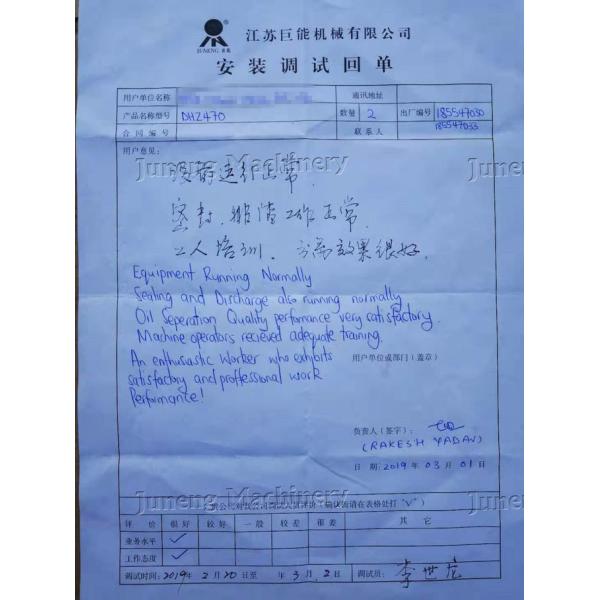 JUNENG 巨能
江苏巨能机械有限公司
安装调试回单
用户单位名称 通讯地址
产品名称型号 DHZ470 数量 2 出厂编号 185547030
185547033
合同编号 联系人
用户意见:
Juneng Machinery Juneng M
设备运行正常.
密封、排渣工作正常.
工人培训、分离效果很好.
Equipment Running Normally
Sealing and Discharge also running normally
Oil Seperation Quality perfomance very satisfactory.
Machine operators recieved adequate training.
An enthusiastic worker who exhibits
satisfactory and proffessional work
Performance!
用户单位或部门(盖章)
负责人(签字):
(RAKESH YADAV)
日 期: 2019 年 03 月 01 日
Juneng Machinery Juneng M
评 价 很好 较好 一般 较差 很差 其 它
业务水平 ✓
工作态度 ✓
调试时间: 2019 年 2 月 20 日至 年 3 月 2 日 调试员: